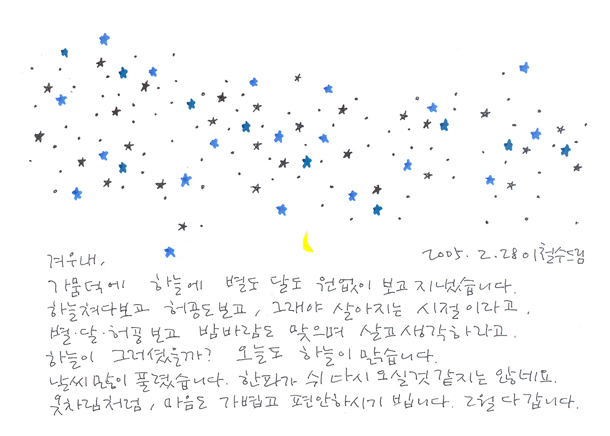 겨우내,
2005. 2. 28 이철수드림
가뭄덕에 하늘에 별도 달도 원없이 보고 지냈습니다.
하늘쳐다보고 허공도보고, 그래야 살아지는 시절이라고,
별·달·허공보고 밤바람도 맞으며 살고생각하라고.
하늘이 그러셨을까? 오늘도 하늘이 맑습니다.
날씨 많이 풀렸습니다. 한파가 쉬 다시 오실것 같지는 않네요.
옷차림처럼, 마음도 가볍고 편안하시기 빕니다. 2월 다 갑니다.